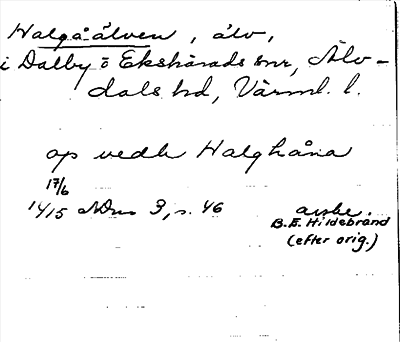 Halgåälven, älv,
i Dalby o Ekshärads snr, Älv-
dals hd, Värml. l.
op vedh Halghåna
17/6
1415 NDns 3, s. 46 avskr.
B.E. Hildebrand
(efter orig.)